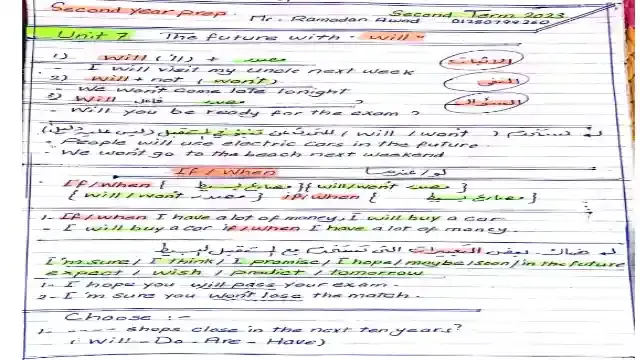 Second year prep.
Second Term 2023
Mr. Ramadan Awad
Unit 7 The future with - will -
1) Will ('ll) + مصدر الاثبات
- I will visit my uncle next week
2) Will + not (won't) النفي
- We won't come late tonight
3) Will فاعل مصدر ? السؤال
- Will you be ready for the exam ?
( will / won't )
- People will use electric cars in the future.
- We won't go to the beach next weekend
If / When لو / عندما
If / When { مضارع بسيط } { will / won't مصدر }
{ will / won't مصدر } if / when { مضارع بسيط }
1- If / when I have a lot of money, I will buy a car
- I will buy a car if / when I have a lot of money.
هناك بعض التعبيرات التى تستخدم مع المستقبل البسيط
I'm sure / I think / I promise / I hope / maybe / soon / in the future
expect / wish / predict / tomorrow
1- I hope you will pass your exam.
2- I'm sure you won't lose the match.
Choose :-
1- ---- shops close in the next ten years?
( Will - Do - Are - Have )